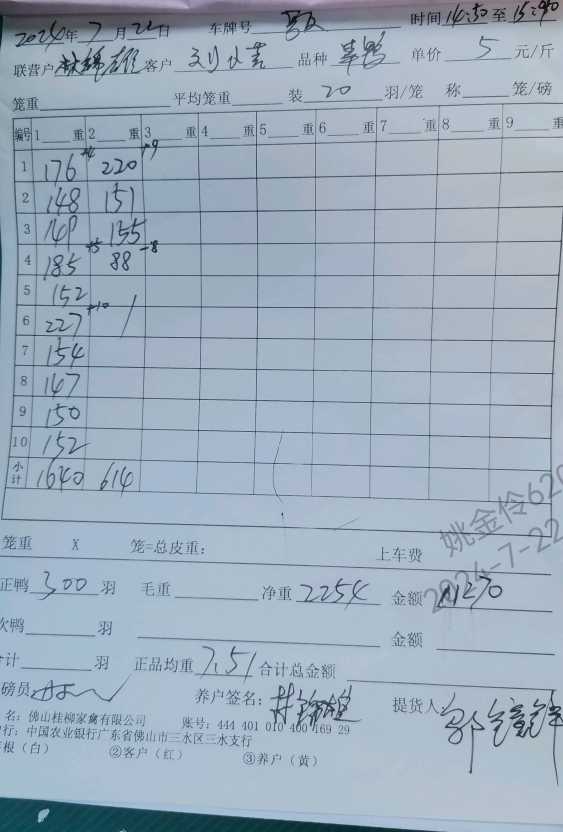 2024年 7月22日 车牌号 时间 14:50 至 15:40
联营户 林锦雄 客户 品种 单价 5 元/斤
笼重 平均笼重 装 20 羽/笼 称 笼/磅
编号 1 重 2 重 3 重 4 重 5 重 6 重 7 重 8 重 9 重
1 176 +4 220 +9
2 148 151
3 149 155
4 185 +5 88 -8
5 152
6 227 +10
7 154
8 147
9 150
10 152
小计 1640 614
笼重 X 笼=总皮重: 上车费
正鸭 300 羽 毛重 净重 2254 金额 11270
次鸭 羽 金额
计 羽 正品均重 7.51 合计总金额
磅员 养户签名: 林锦雄 提货人
名: 佛山桂柳家禽有限公司 账号: 444 401 010 400 169 29
行: 中国农业银行广东省佛山市三水区三水支行
根（白） ②客户（红） ③养户（黄）
姚金伶620
2024-7-22